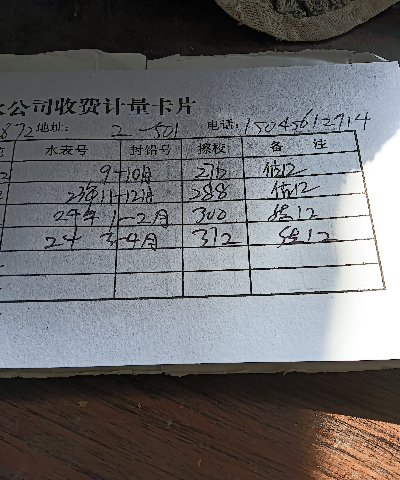 公司收费计量卡片
872 地址: 2-501 电话: 15045612714
水表号 封铅号 擦权 备注
9-10月 276 估12
23年11-12月 288 估12
24年1-2月 300 估12
24 3-4月 312 估12